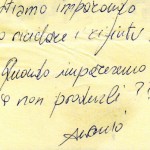 Stiamo imparando
a riciclare i rifiuti
Quando impareremo
a non produrli ??